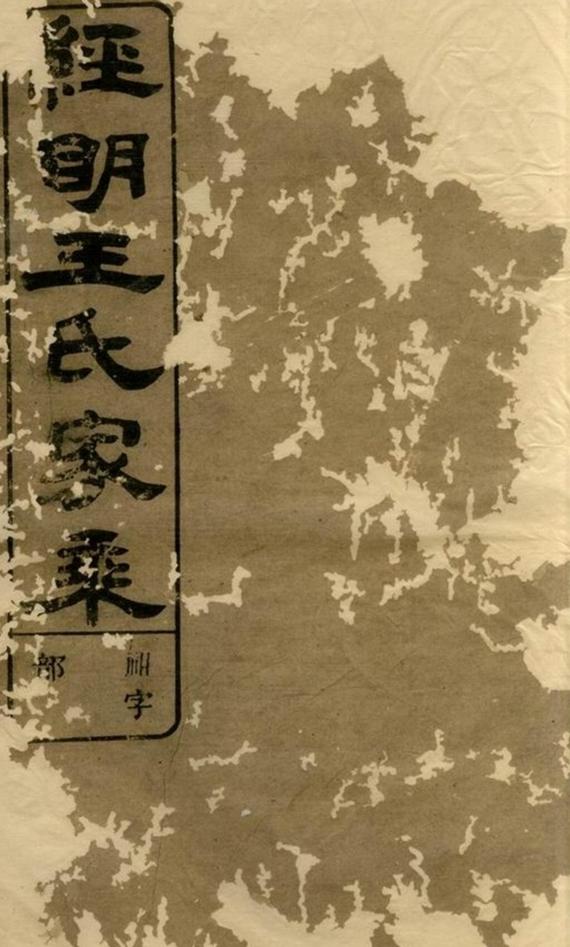 經明王氏家乘
字
部